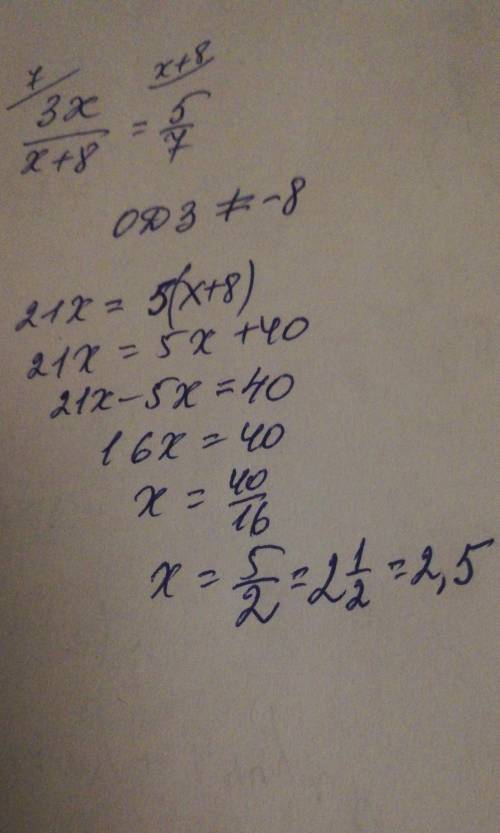 7/ 3x/x+8 = x+8/ 5/7
ОДЗ ≠ -8
21x = 5(x+8)
21x = 5x +40
21x - 5x = 40
16x = 40
x = 40/16
x = 5/2 = 2 1/2 = 2,5